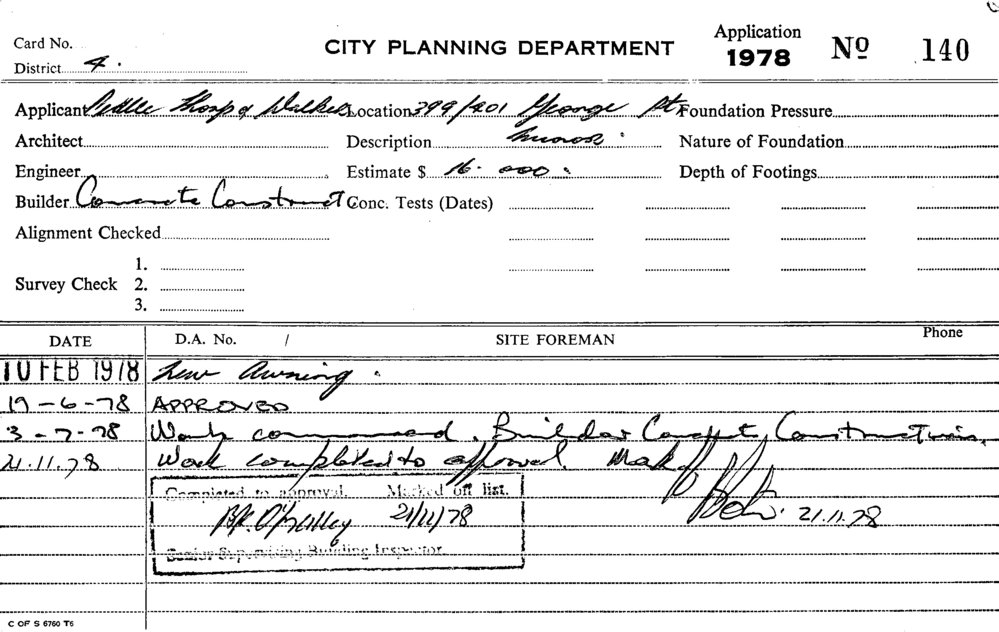 Card No.
CITY PLANNING DEPARTMENT
Application
1978 Nº 140
District 4.
Applicant Peddle Thorp & Walker Location 399/401 George St. Foundation Pressure
Architect Description Nature of Foundation
Engineer Estimate $ 16.000. Depth of Footings
Builder Concrete Construct Conc. Tests (Dates)
Alignment Checked
Survey Check 1.
2.
3.
DATE D.A. No. / SITE FOREMAN Phone
10 FEB 1978 New Awning.
19-6-78 APPROVED
3-7-78 Work commenced. Builder Concrete Constructions
21.11.78 Work completed to approval. Mark
21.11.78
Completed to approval. Marked off list.
21/11/78
Senior Supervising Building Inspector
C OF S 6760 T6